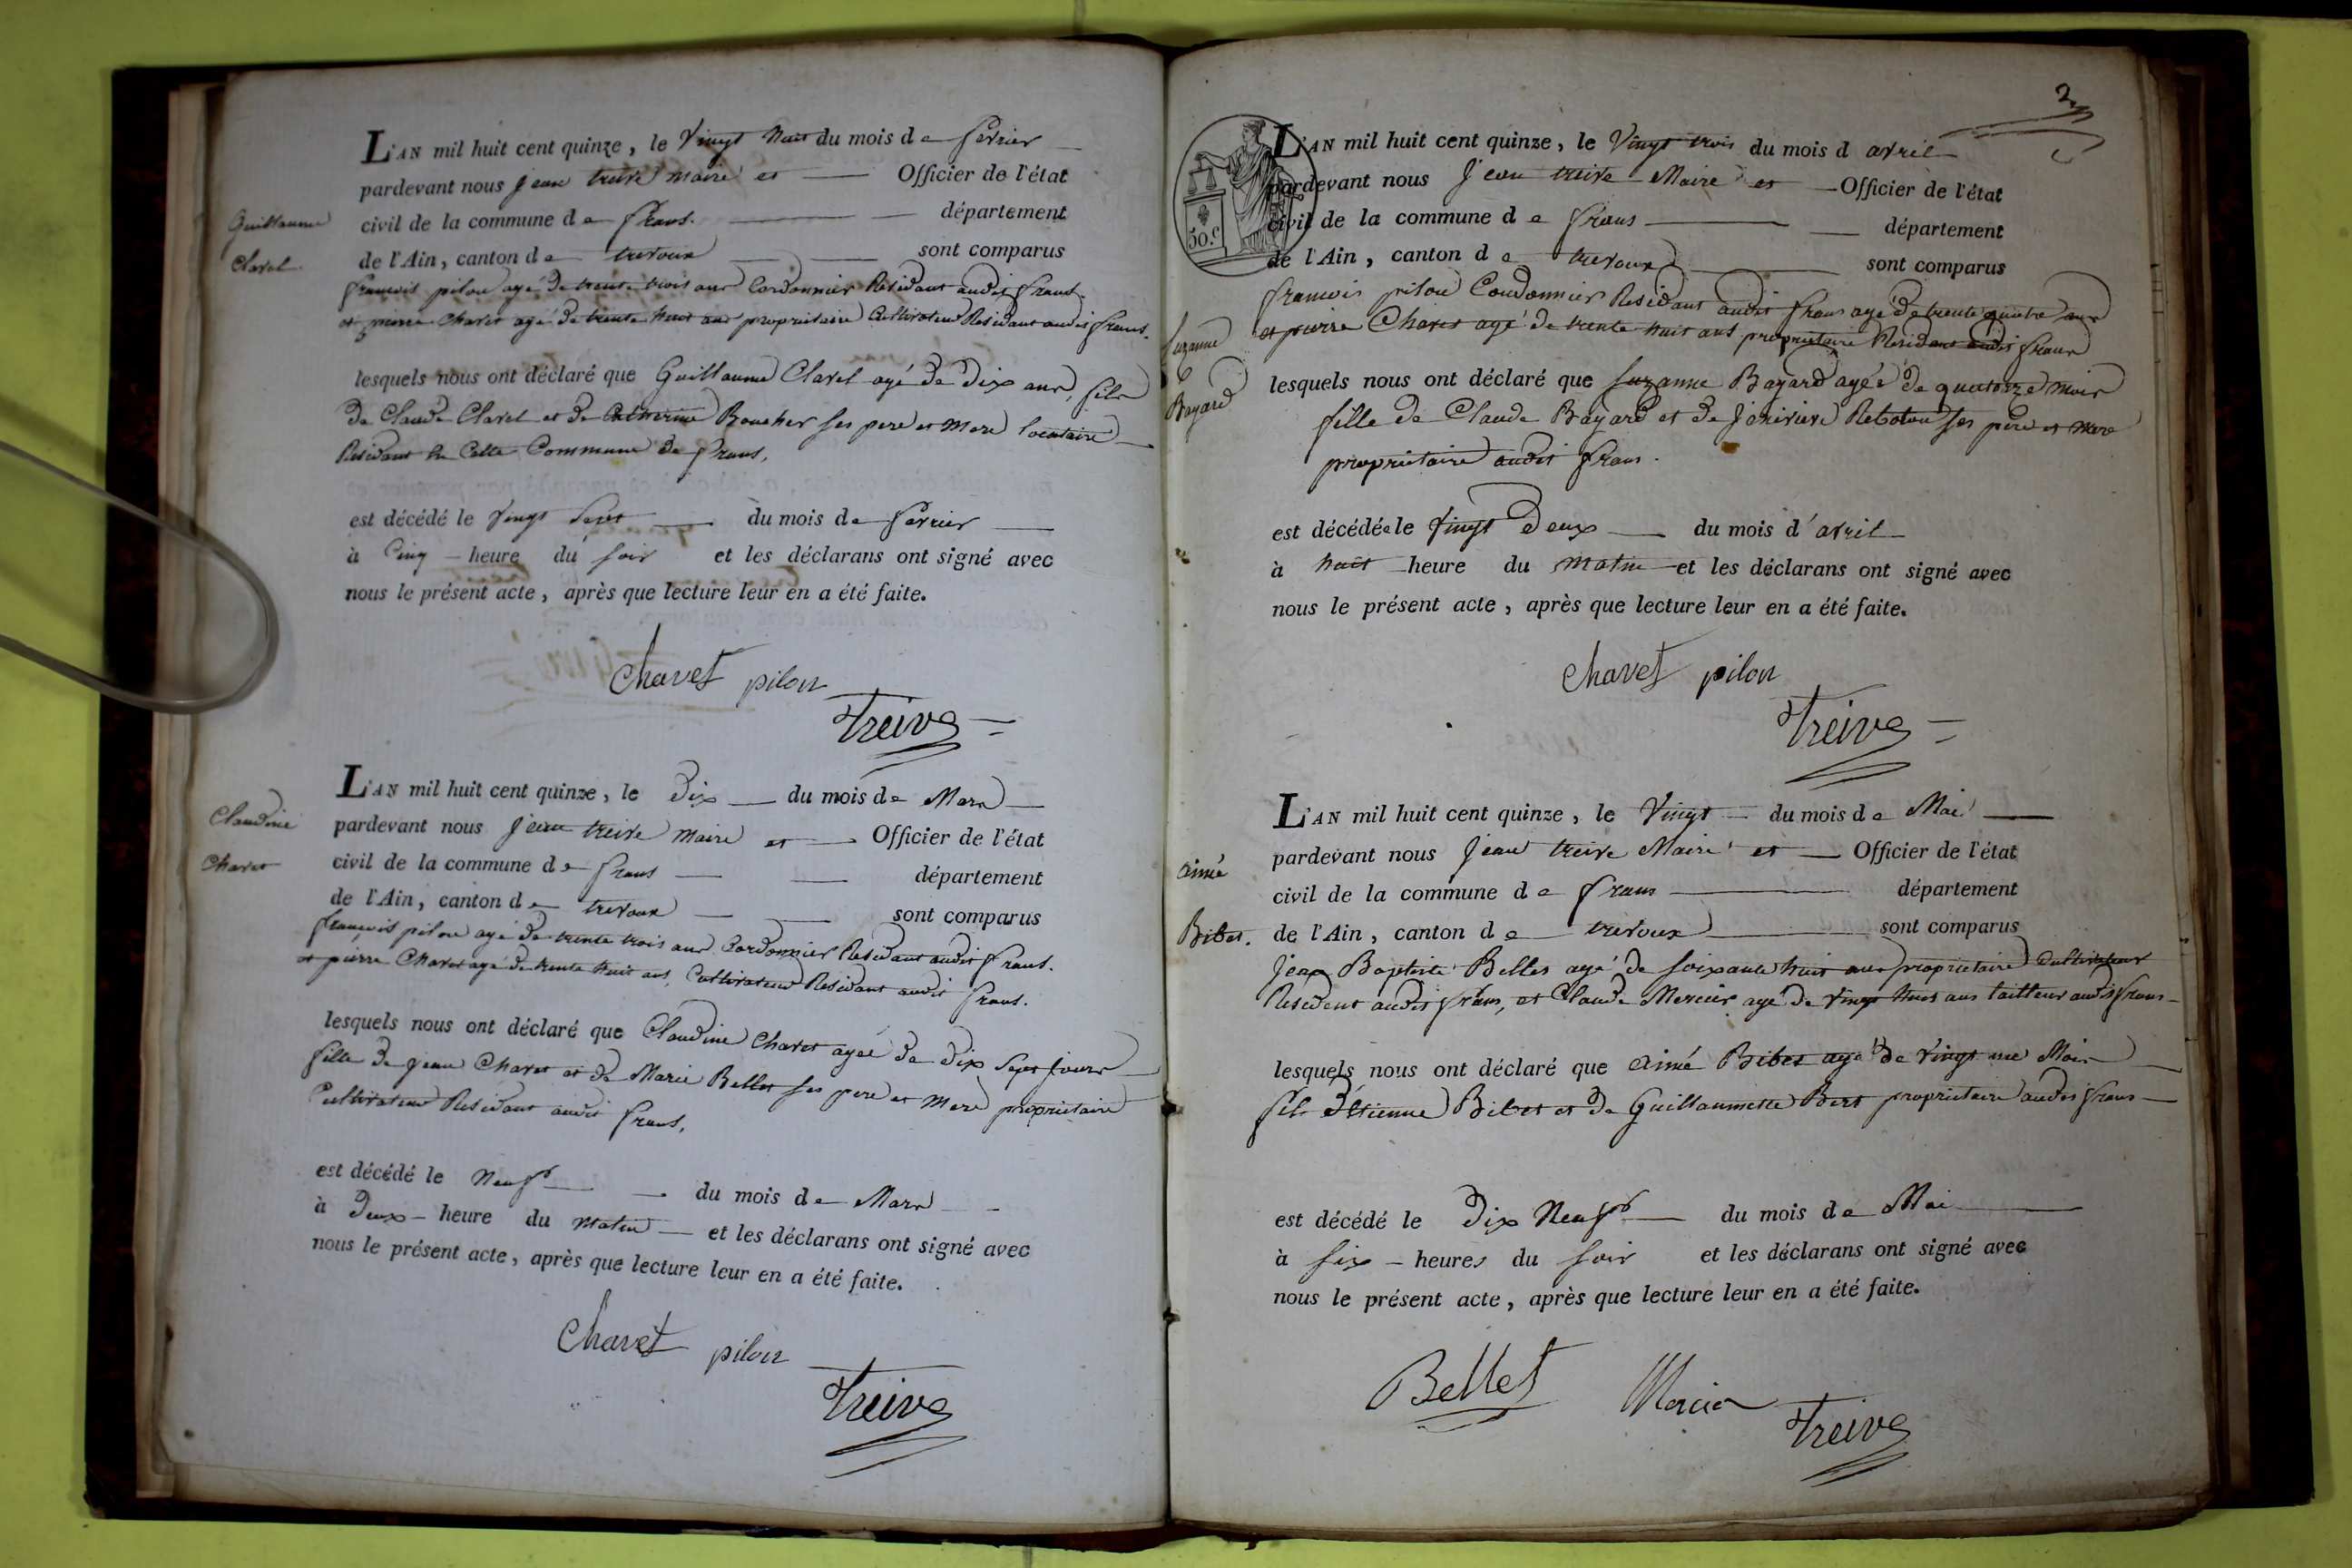 Guillaume
Clavel
L'AN mil huit cent quinze, le Vingt huit du mois de fevrier
pardevant nous jean treive maire et Officier de l'état
civil de la commune de frans. département
de l'Ain, canton de trevoux sont comparus
françois pilon agé de trente trois ans Cordonnier Residant audit frans.
et pierre Chavet agé de trente huit ans propriétaire Cultivateur Residant audit frans.
lesquels nous ont déclaré que Guillaume Clavel agé de dix ans, fils
de Claude Clavel et de Catherine Boucher ses pere et mere locataire
Residant en Cette Commune de frans,
est décédé le vingt Sept du mois de fevrier
à Cinq heure du soir et les déclarans ont signé avec
nous le présent acte, après que lecture leur en a été faite.
Chavet pilon
Treive
Claudine
Chavet
L'AN mil huit cent quinze, le Dix du mois de Mars
pardevant nous jean treive maire et Officier de l'état
civil de la commune de frans département
de l'Ain, canton de trevoux sont comparus
françois pilon agé de trente trois ans Cordonnier Residant audit frans.
et pierre Chavet agé de trente huit ans, Cultivateur Residant audit frans.
lesquels nous ont déclaré que Claudine Chavet agée de dix Sept jours
fille de jean Chavet et de Marie Bellet ses pere et mere propriétaire
Cultivateur Residant audit frans,
est décédé le Neuf du mois de Mars
à Deux heure du matin et les déclarans ont signé avec
nous le présent acte, après que lecture leur en a été faite.
Chavet pilon
Treive
2
50.c
Suzanne
Bayard
L'AN mil huit cent quinze, le Vingt trois du mois d avril
pardevant nous Jean treive Maire et Officier de l'état
civil de la commune de frans département
de l'Ain, canton de trevoux sont comparus
francois pilon Coudonnier Residant audit frans agé de trente quatre ans
et pierre Chavet agé de trente huit ans propriétaire Residant audit frans
lesquels nous ont déclaré que Suzanne Bayard agée de quatorze mois
fille de Claude Bayard et de jenevieve Rebotou ses père et mere
propriétaire audit frans.
est décédée le vingt Deux du mois d'avril
à huit heure du matin et les déclarans ont signé avec
nous le présent acte, après que lecture leur en a été faite.
Chavet pilon
Treive
aimé
Bibet.
L'AN mil huit cent quinze, le Vingt du mois de Mai
pardevant nous Jean treive Maire et Officier de l'état
civil de la commune de frans département
de l'Ain, canton de trevoux sont comparus
Jean Baptiste Bellet agé de soixante huit ans propriétaire Cultivateur
Résident audit frans, et Claude Mercier agé de vingt huit ans tailleur audit frans
lesquels nous ont déclaré que aimé Bibet agé de vingt un Mois
fils d'Etienne Bibet et de Guillaumette Bert propriétaire audit frans
est décédé le dix Neuf du mois de Mai
à six heures du soir et les déclarans ont signé avec
nous le présent acte, après que lecture leur en a été faite.
Bellet Mercier
Treive